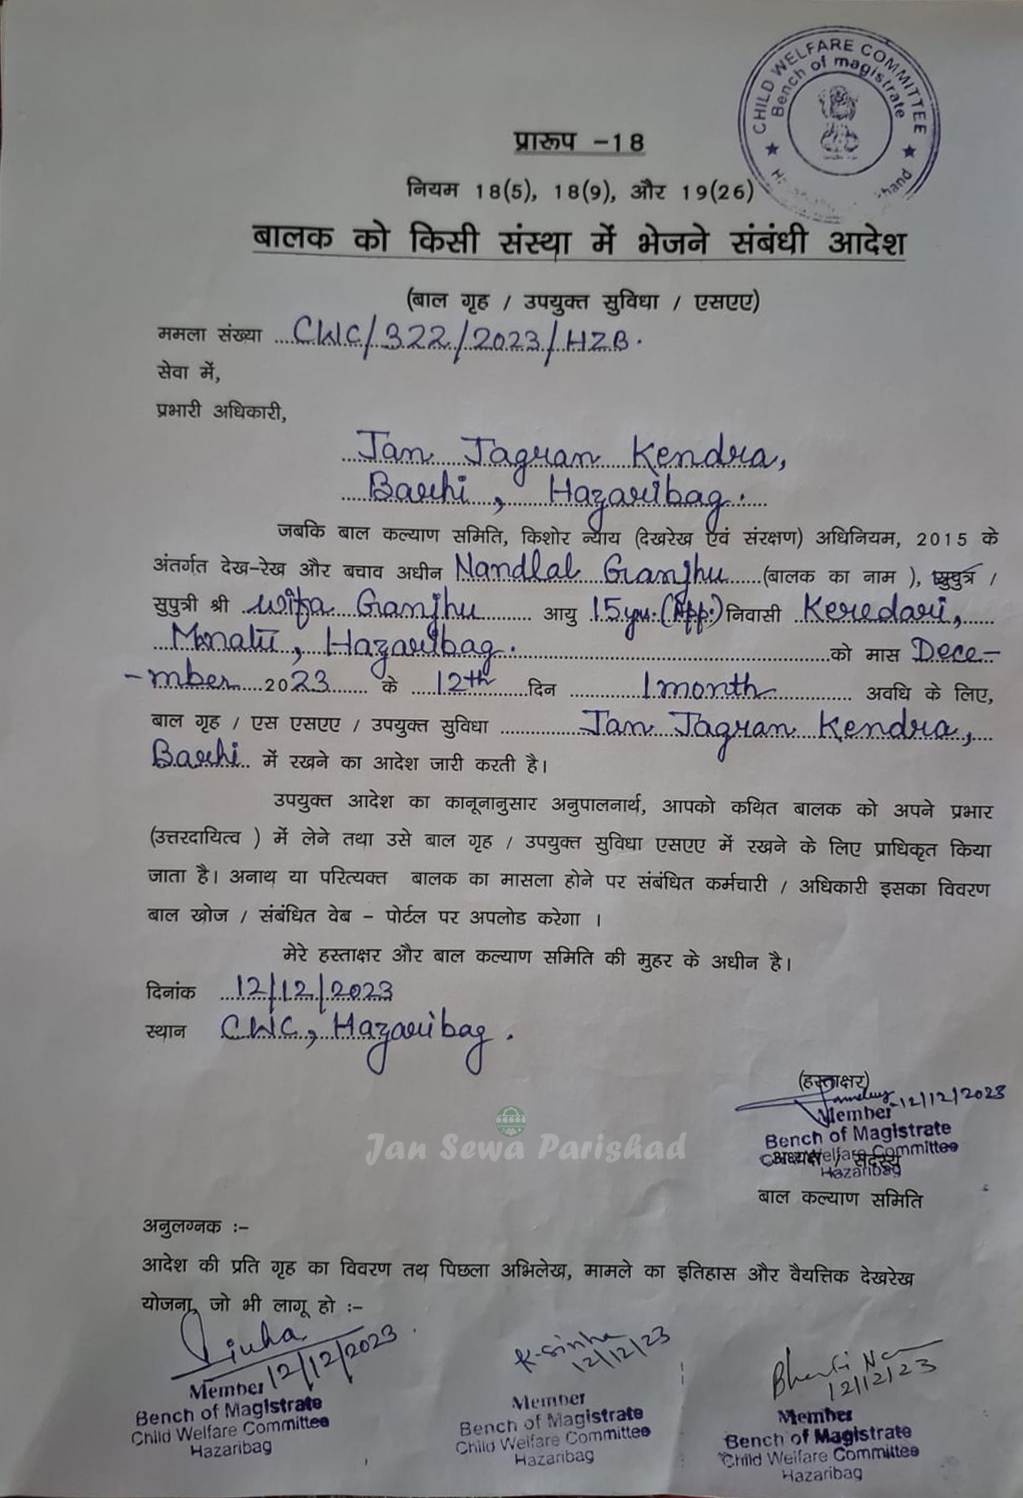 CHILD WELFARE COMMITTEE
Bench of magistrate
प्रारूप –18
नियम 18(5), 18(9), और 19(26)
बालक को किसी संस्था में भेजने संबंधी आदेश
(बाल गृह / उपयुक्त सुविधा / एसएए)
ममला संख्या ....CWC/322/2023/HZB.
सेवा में,
प्रभारी अधिकारी,
Jan Jagran Kendra,
Barhi, Hazaribag.
जबकि बाल कल्याण समिति, किशोर न्याय (देखरेख एवं संरक्षण) अधिनियम, 2015 के
अंतर्गत देख–रेख और बचाव अधीन Nandlal Ganjhu......(बालक का नाम ), सुपुत्र /
सुपुत्री श्री Ganjhu ......... आयु 15yr.(App.) निवासी Keredari,......
Hazaribag. ............को मास Dece–
–mber...2023....... के ....12th....दिन ..........1month............ अवधि के लिए,
बाल गृह / एस एसएए / उपयुक्त सुविधा .............Jan Jagran Kendra,...
Barhi.. में रखने का आदेश जारी करती है।
उपयुक्त आदेश का कानूनानुसार अनुपालनार्थ, आपको कथित बालक को अपने प्रभार
(उत्तरदायित्व ) में लेने तथा उसे बाल गृह / उपयुक्त सुविधा एसएए में रखने के लिए प्राधिकृत किया
जाता है। अनाथ या परित्यक्त बालक का मासला होने पर संबंधित कर्मचारी / अधिकारी इसका विवरण
बाल खोज / संबंधित वेब – पोर्टल पर अपलोड करेगा ।
मेरे हस्ताक्षर और बाल कल्याण समिति की मुहर के अधीन है।
दिनांक ....12/12/2023
स्थान CWC, Hazaribag.
(हस्ताक्षर)
12/12/2023
Member
Bench of Magistrate
Child Welfare Committee
अध्यक्ष / सदस्य
Hazaribag
बाल कल्याण समिति
Jan Sewa Parishad
अनुलग्नक :–
आदेश की प्रति गृह का विवरण तथ पिछला अभिलेख, मामले का इतिहास और वैयत्तिक देखरेख
योजना, जो भी लागू हो :–
12/12/2023
Member
Bench of Magistrate
Child Welfare Committee
Hazaribag
K-Sinha
12/12/23
Member
Bench of Magistrate
Child Welfare Committee
Hazaribag
12/12/23
Member
Bench of Magistrate
Child Welfare Committee
Hazaribag